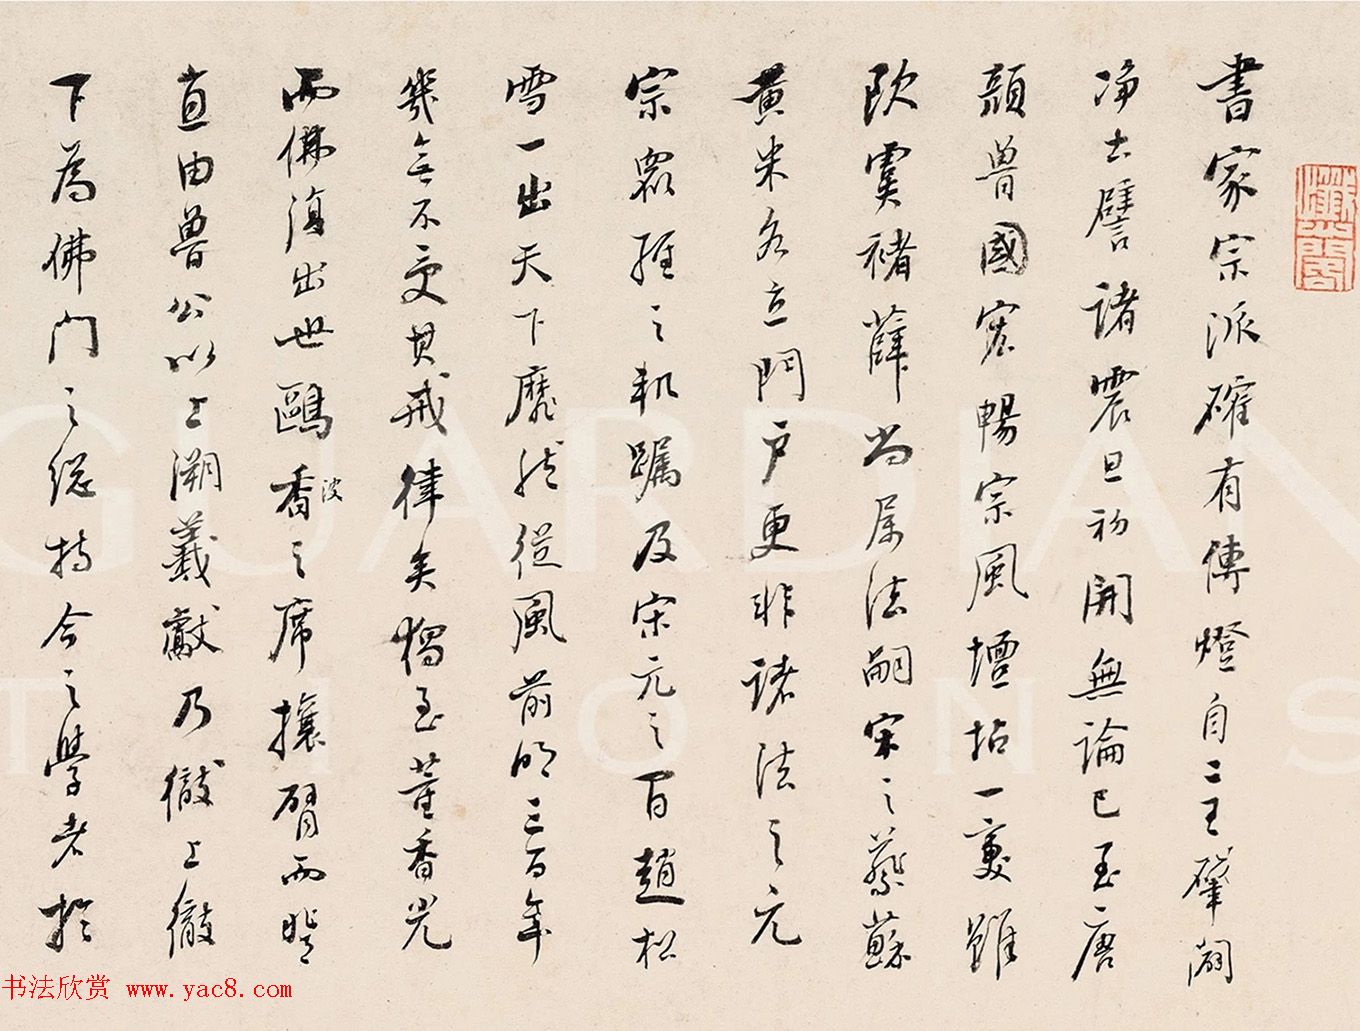 書家宗派確有傳燈自二王肇闢
淨土譬諸震旦初開無論已至唐
顏魯國宏暢宗風壇坫一變雖
歐虞褚薛尚属法嗣宋之蔡蘇
黃米各立門戶更非諸法之元
宗之軌躅及宋元之間趙松
雪一出天下靡然從風前明三百年
幾無不受其戒律矣獨至董香光
而佛復出世鷗香波之席攘臂而登
直由魯公以上溯羲獻乃徹上徹
下為佛門之總持今之學者於
GUARDIAN
TIONS
书法欣赏 www.yac8.com